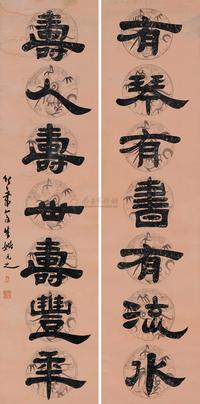 有琴有書有流水
壽人壽世壽豐年